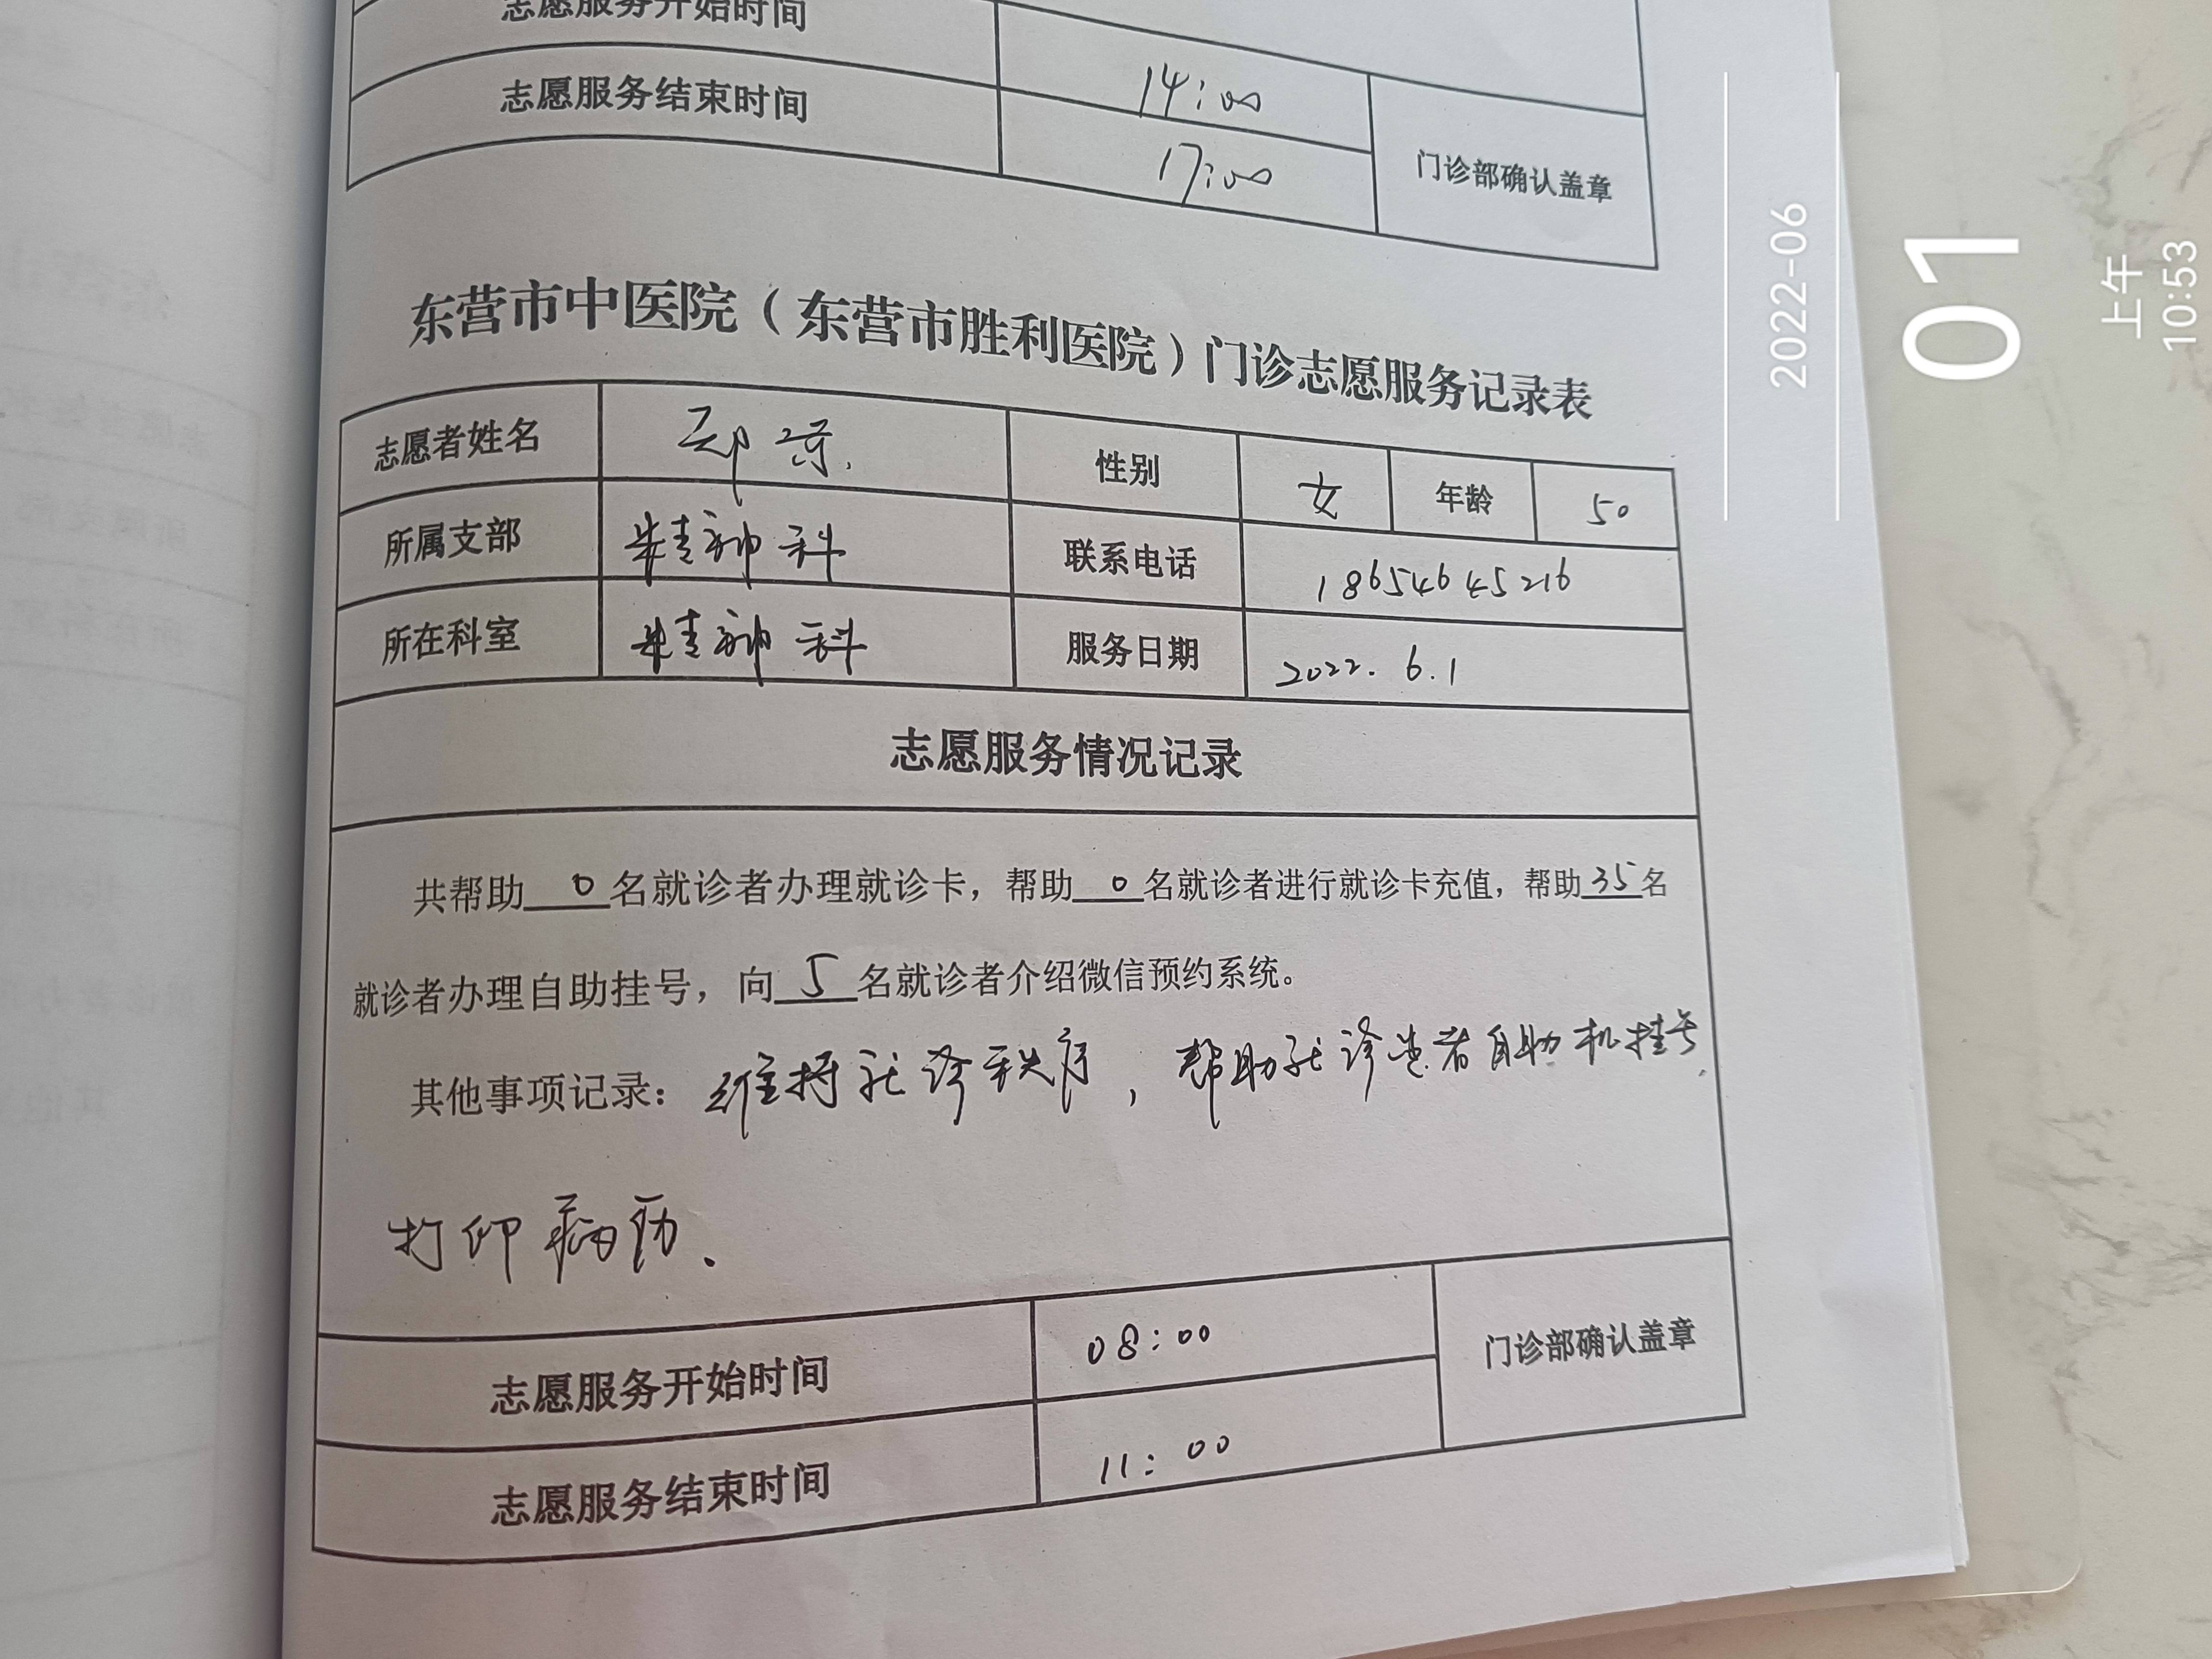 志愿服务开始时间 14:00
志愿服务结束时间 17:00 门诊部确认盖章
东营市中医院（东营市胜利医院）门诊志愿服务记录表
志愿者姓名 性别 女 年龄 50
所属支部 精神科 联系电话 18654645216
所在科室 精神科 服务日期 2022.6.1
志愿服务情况记录
共帮助 0 名就诊者办理就诊卡，帮助 0 名就诊者进行就诊卡充值，帮助 35 名
就诊者办理自助挂号，向 5 名就诊者介绍微信预约系统。
其他事项记录：维持就诊秩序，帮助就诊患者自助机挂号、
打印病历.
志愿服务开始时间 08:00 门诊部确认盖章
志愿服务结束时间 11:00
2022-06
01
上午
10:53